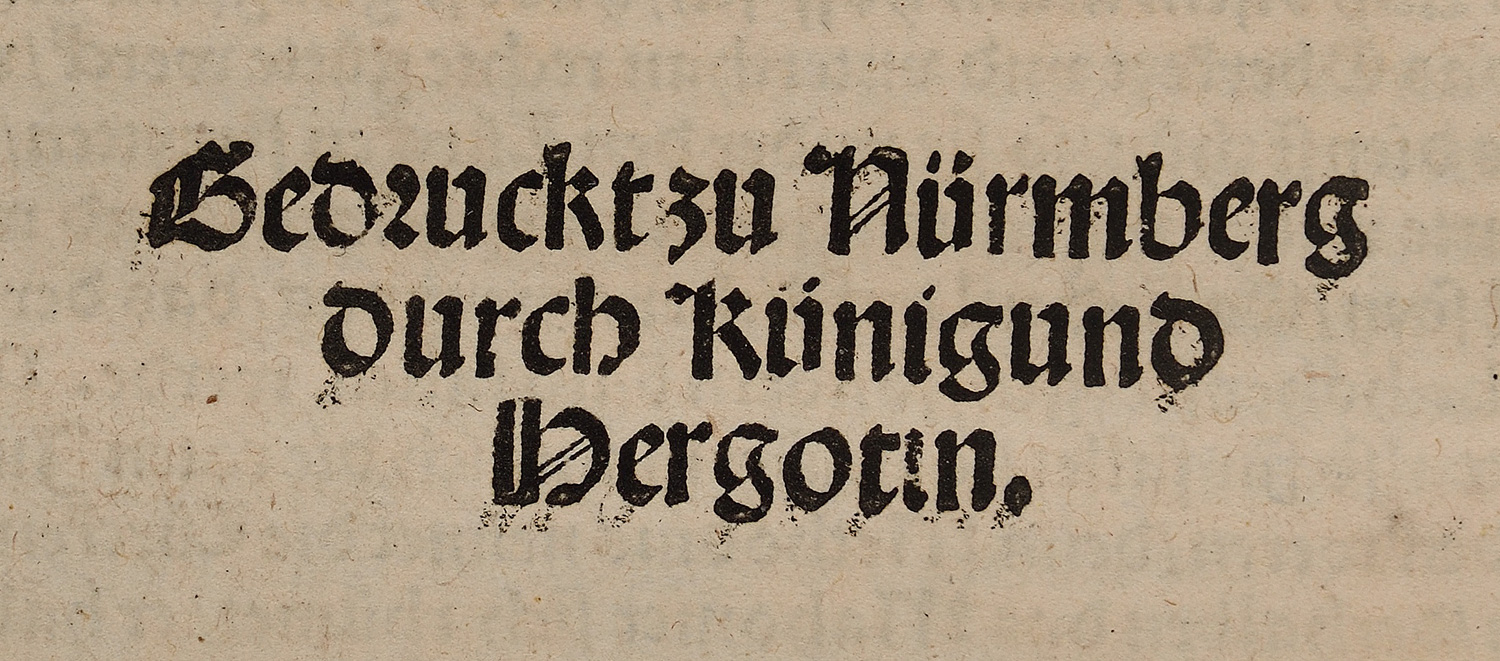 Gedruckt zu Nürmberg
durch Künigund
Hergotin.